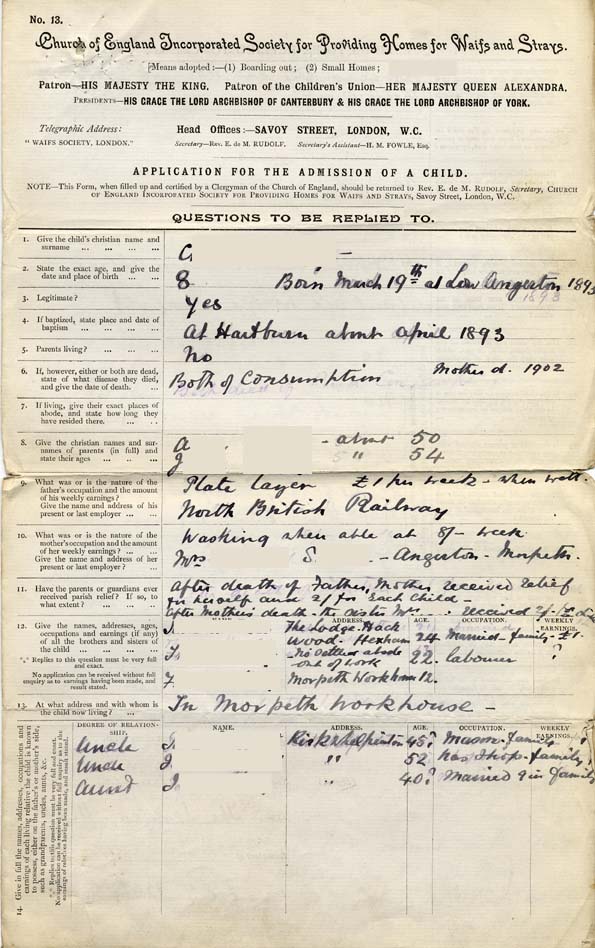 No. 13.
Church of England Incorporated Society for Providing Homes for Waifs and Strays.
Means adopted:—(1) Boarding out; (2) Small Homes;
Patron—HIS MAJESTY THE KING. Patron of the Children's Union—HER MAJESTY QUEEN ALEXANDRA.
PRESIDENTS—HIS GRACE THE LORD ARCHBISHOP OF CANTERBURY & HIS GRACE THE LORD ARCHBISHOP OF YORK.
Telegraphic Address: Head Offices:—SAVOY STREET, LONDON, W.C.
"WAIFS SOCIETY, LONDON." Secretary—REV. E. DE M. RUDOLF. Secretary's Assistant—H. M. FOWLE, ESQ.
APPLICATION FOR THE ADMISSION OF A CHILD.
NOTE—This Form, when filled up and certified by a Clergyman of the Church of England, should be returned to Rev. E. DE M. RUDOLF, Secretary, CHURCH
OF ENGLAND INCORPORATED SOCIETY FOR PROVIDING HOMES FOR WAIFS AND STRAYS, Savoy Street, London, W.C.
QUESTIONS TO BE REPLIED TO.
1. Give the child's christian name and
surname ... ... ... ...
C. —
2. State the exact age, and give the
date and place of birth ... ...
8 Born March 19th at Low Angerton 1893
1893
3. Legitimate? ... ... ...
Yes
4. If baptized, state place and date of
baptism ... ... ... ...
At Hartburn about April 1893
5. Parents living? ... ... ...
No
6. If, however, either or both are dead,
state of what disease they died,
and give the date of death. ...
Both of Consumption Mother d. 1902
7. If living, give their exact places of
abode, and state how long they
have resided there. ... ...
8. Give the christian names and sur-
names of parents (in full) and
state their ages ... ... ...
A - about 50
J " 54
9. What was or is the nature of the
father's occupation and the amount
of his weekly earnings?
Give the name and address of his
present or last employer ... ...
Plate layer £1 per week - when well.
North British Railway
10. What was or is the nature of the
mother's occupation and the amount
of her weekly earnings?
Give the name and address of her
present or last employer? ...
Washing when able at 8/- week
Mrs S. - Angerton - Morpeth.
11. Have the parents or guardians ever
received parish relief? If so, to
what extent? ... ... ...
After death of Father, Mother received relief
for herself and 2/ for Each Child -
After Mother's death - the sister Mrs received 2/-
12. Give the names, addresses, ages,
occupations and earnings (if any)
of all the brothers and sisters of
the child ... ... ...
"*" Replies to this question must be very full
and exact.
No application can be received without full
enquiry as to earnings having been made, and
result stated.
ADDRESS. AGE. OCCUPATION. WEEKLY EARNINGS.
The Lodge Hack
wood. Hexham 24 Married - family - £1.
No settled abode
out of work 22. labourer ?
Morpeth Workhouse 12.
13. At what address and with whom is
the child now living? ... ...
In Morpeth Workhouse -
14. Give in full the names, addresses, occupations and
earnings of each living relative the child is known
to possess, either on the father's or mother's side,
such as grandparents, uncles, aunts, &c.
"*" Replies to this question must be very full and exact.
No application can be received without full enquiry as to the
earnings of relatives having been made.
DEGREE OF RELATION-
SHIP. NAME. ADDRESS. AGE. OCCUPATION. WEEKLY EARNINGS.
Uncle J. Kirkwhelpington 45? Mason - family ?
Uncle J. " 52 has shop - family,
Aunt J. " 40? Married 9 in family